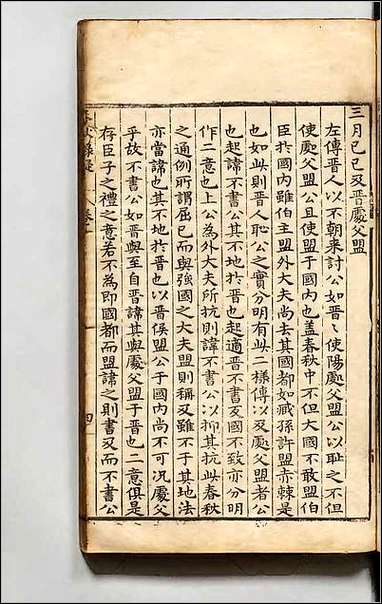 三月乙巳及晋處父盟
左傳晋人以不朝来討公如晋〻使陽處父盟公以恥之不但
使處父盟公且使盟于國内也盖春秋中不但大國不敢盟伯
臣扵國内雖伯主盟外大夫尚去其國都如臧孫許盟赤棘是
也如此則晋人恥公之實分明有此二樣傳以及處父盟者公
也起諱不書公其不地扵晋也起適晋不書反國不致亦分明
作二意也上公為外大夫所抗則諱不書公以抑其抗此春秋
之通例所謂屈已而與強國之大夫盟則称及雖不于其地法
亦當諱也其不地扵晋也以晋侯盟公于國内尚不可况處父
乎故不書公如晋與至自晋諱其與處父盟于晋也二意俱是
存臣子之禮之意若不為即國都而盟諱之則書及而不書公
四